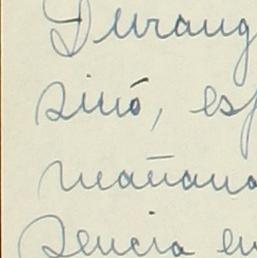 Durang
sinó, esp
mañana
sencia en